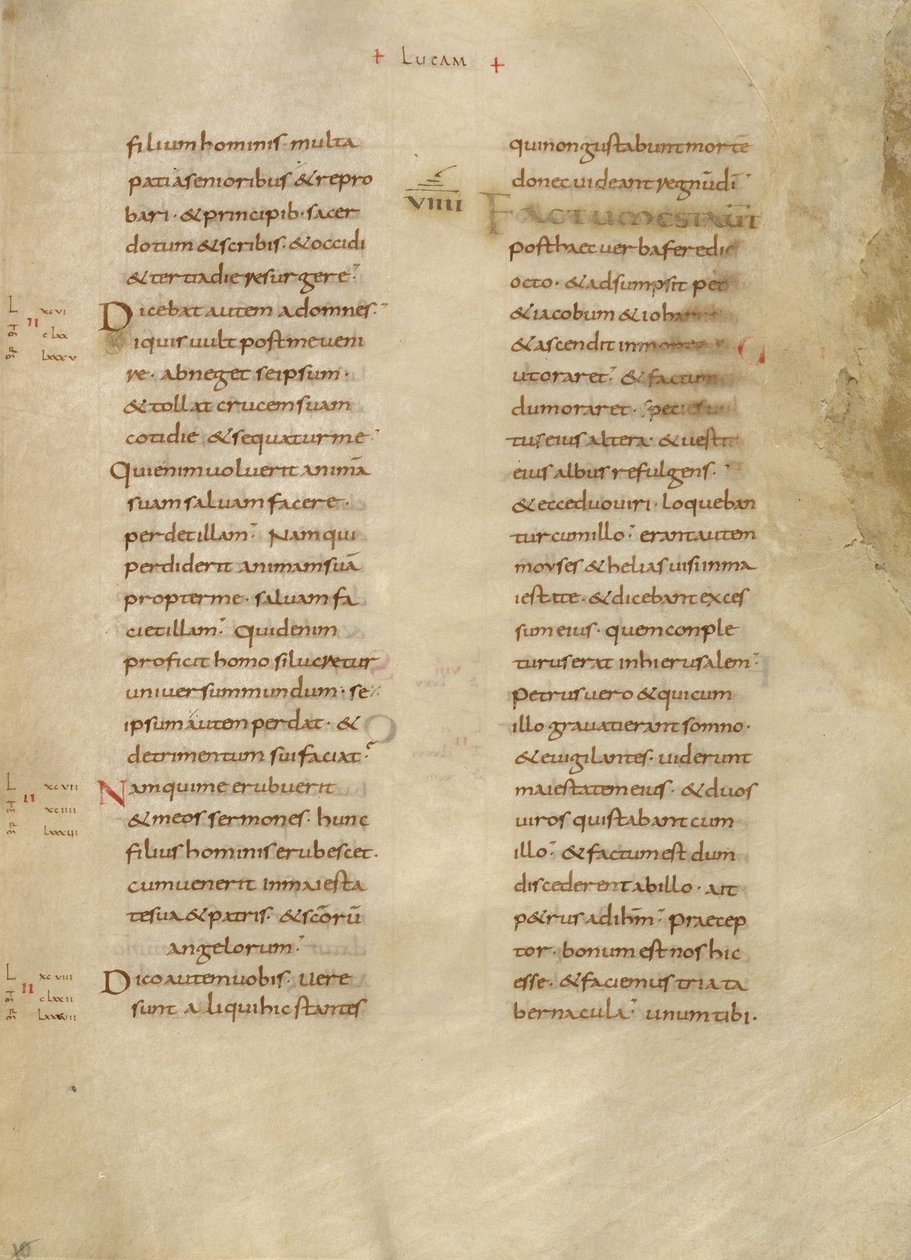 + LUCAM +
filium hominis· multa
pati a senioribus & repro
bari· & principib· sacer
dotum & scribis· & occidi
& tertia die resurgere·
L xcvi
II
clxx
lxxxv
Dicebat autem ad omnes·
Si quis uult post me ueni
re· abneget se ipsum·
& tollat crucem suam
cotidie & sequatur me·
Qui enim uoluerit animā
suam saluam facere·
perdet illam· Nam qui
perdiderit animam suā
propter me· saluam fa
ciet illam· Quid enim
proficit homo si lucretur
universum mundum· se
ipsum autem perdat· &
detrimentum sui faciat·
L xcvii
II
xciiii
lxxxvi
Nam qui me erubuerit
& meos sermones· hunc
filius hominis erubescet·
cum uenerit in maiesta
te sua & patris· & scōrū
angelorum·
L xcviii
II
clxxii
lxxxvii
Dico autem uobis· uere
sunt aliqui hic stantes
qui non gustabunt mortē
donec uideant regnū dī
VIIII
FACTUM EST AUT̄
post haec uerba fere die
octo· & adsumpsit pet
& iacobum & iohan
& ascendit in montem
ut oraret· & factum
dum oraret· species uul
tus eius altera· & uestit
eius albus refulgens·
& ecce duo uiri· loqueban
tur cum illo· erant autem
moyses & helias uisi in ma
iestate· & dicebant exces
sum eius· quem conple
turus erat in hierusalem·
Petrus uero & qui cum
illo grauati erant somno·
& euigilantes· uiderunt
maiestatem eius· & duos
uiros qui stabant cum
illo· & factum est dum
discederent ab illo· ait
p&rus ad ihm̄· Praecep
tor· bonum est nos hic
esse· & faciemus tria ta
bernacula· unum tibi·